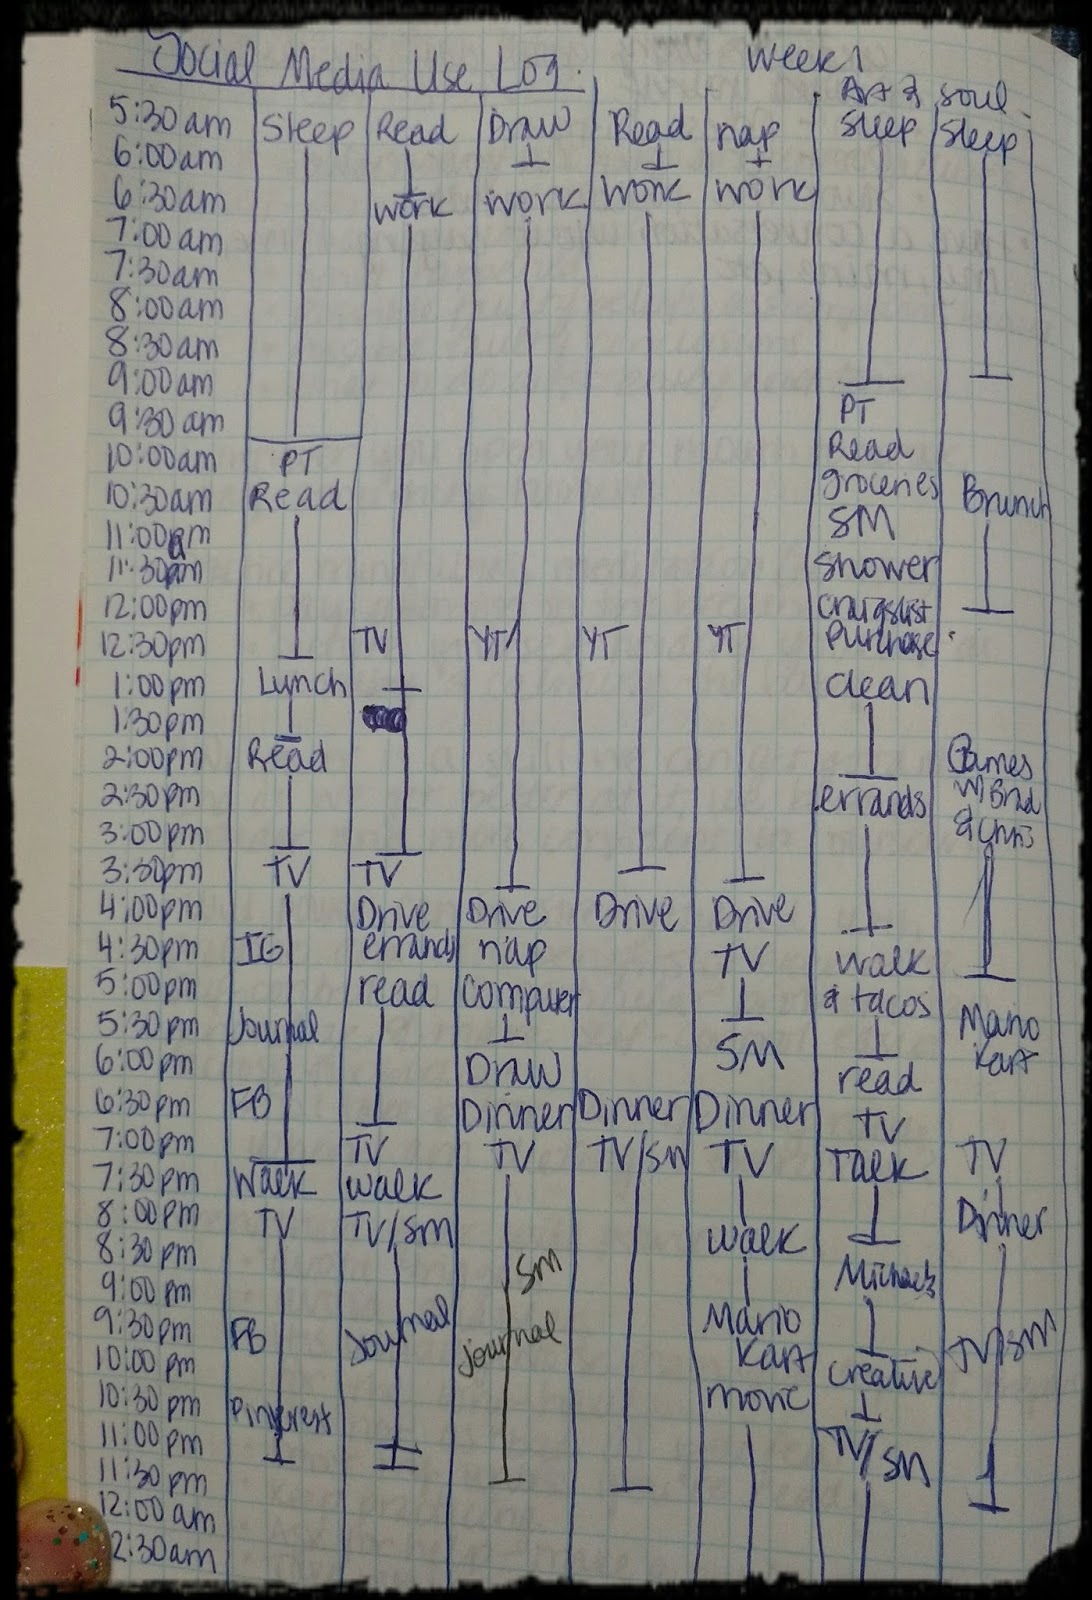 Social Media Use Log.
Week 1
Art & Soul
5:30am Sleep Read Draw Read nap Sleep Sleep
6:00am
6:30am work work work work
7:00am
7:30am
8:00am
8:30am
9:00am
9:30am PT
10:00am PT Read
10:30am Read groceries Brunch
11:00am SM
11:30am Shower
12:00pm craigslist
12:30pm TV YT YT YT purchase
1:00pm Lunch clean
1:30pm
2:00pm Read Games
2:30pm errands w/ Brad
3:00pm & Chris
3:30pm TV TV
4:00pm Drive Drive Drive Drive
4:30pm IG errands nap TV walk
5:00pm read computer & tacos
5:30pm Journal Mario
6:00pm Draw SM read Kart
6:30pm FB Dinner Dinner Dinner TV
7:00pm TV TV TV/SM TV Talk TV
7:30pm Walk walk
8:00pm TV TV/SM Dinner
8:30pm walk
9:00pm SM Michaels
9:30pm FB Journal Journal Mario TV/SM
10:00pm Kart Creative
10:30pm Pinterest movie
11:00pm TV/SM
11:30pm
12:00am
2:30am